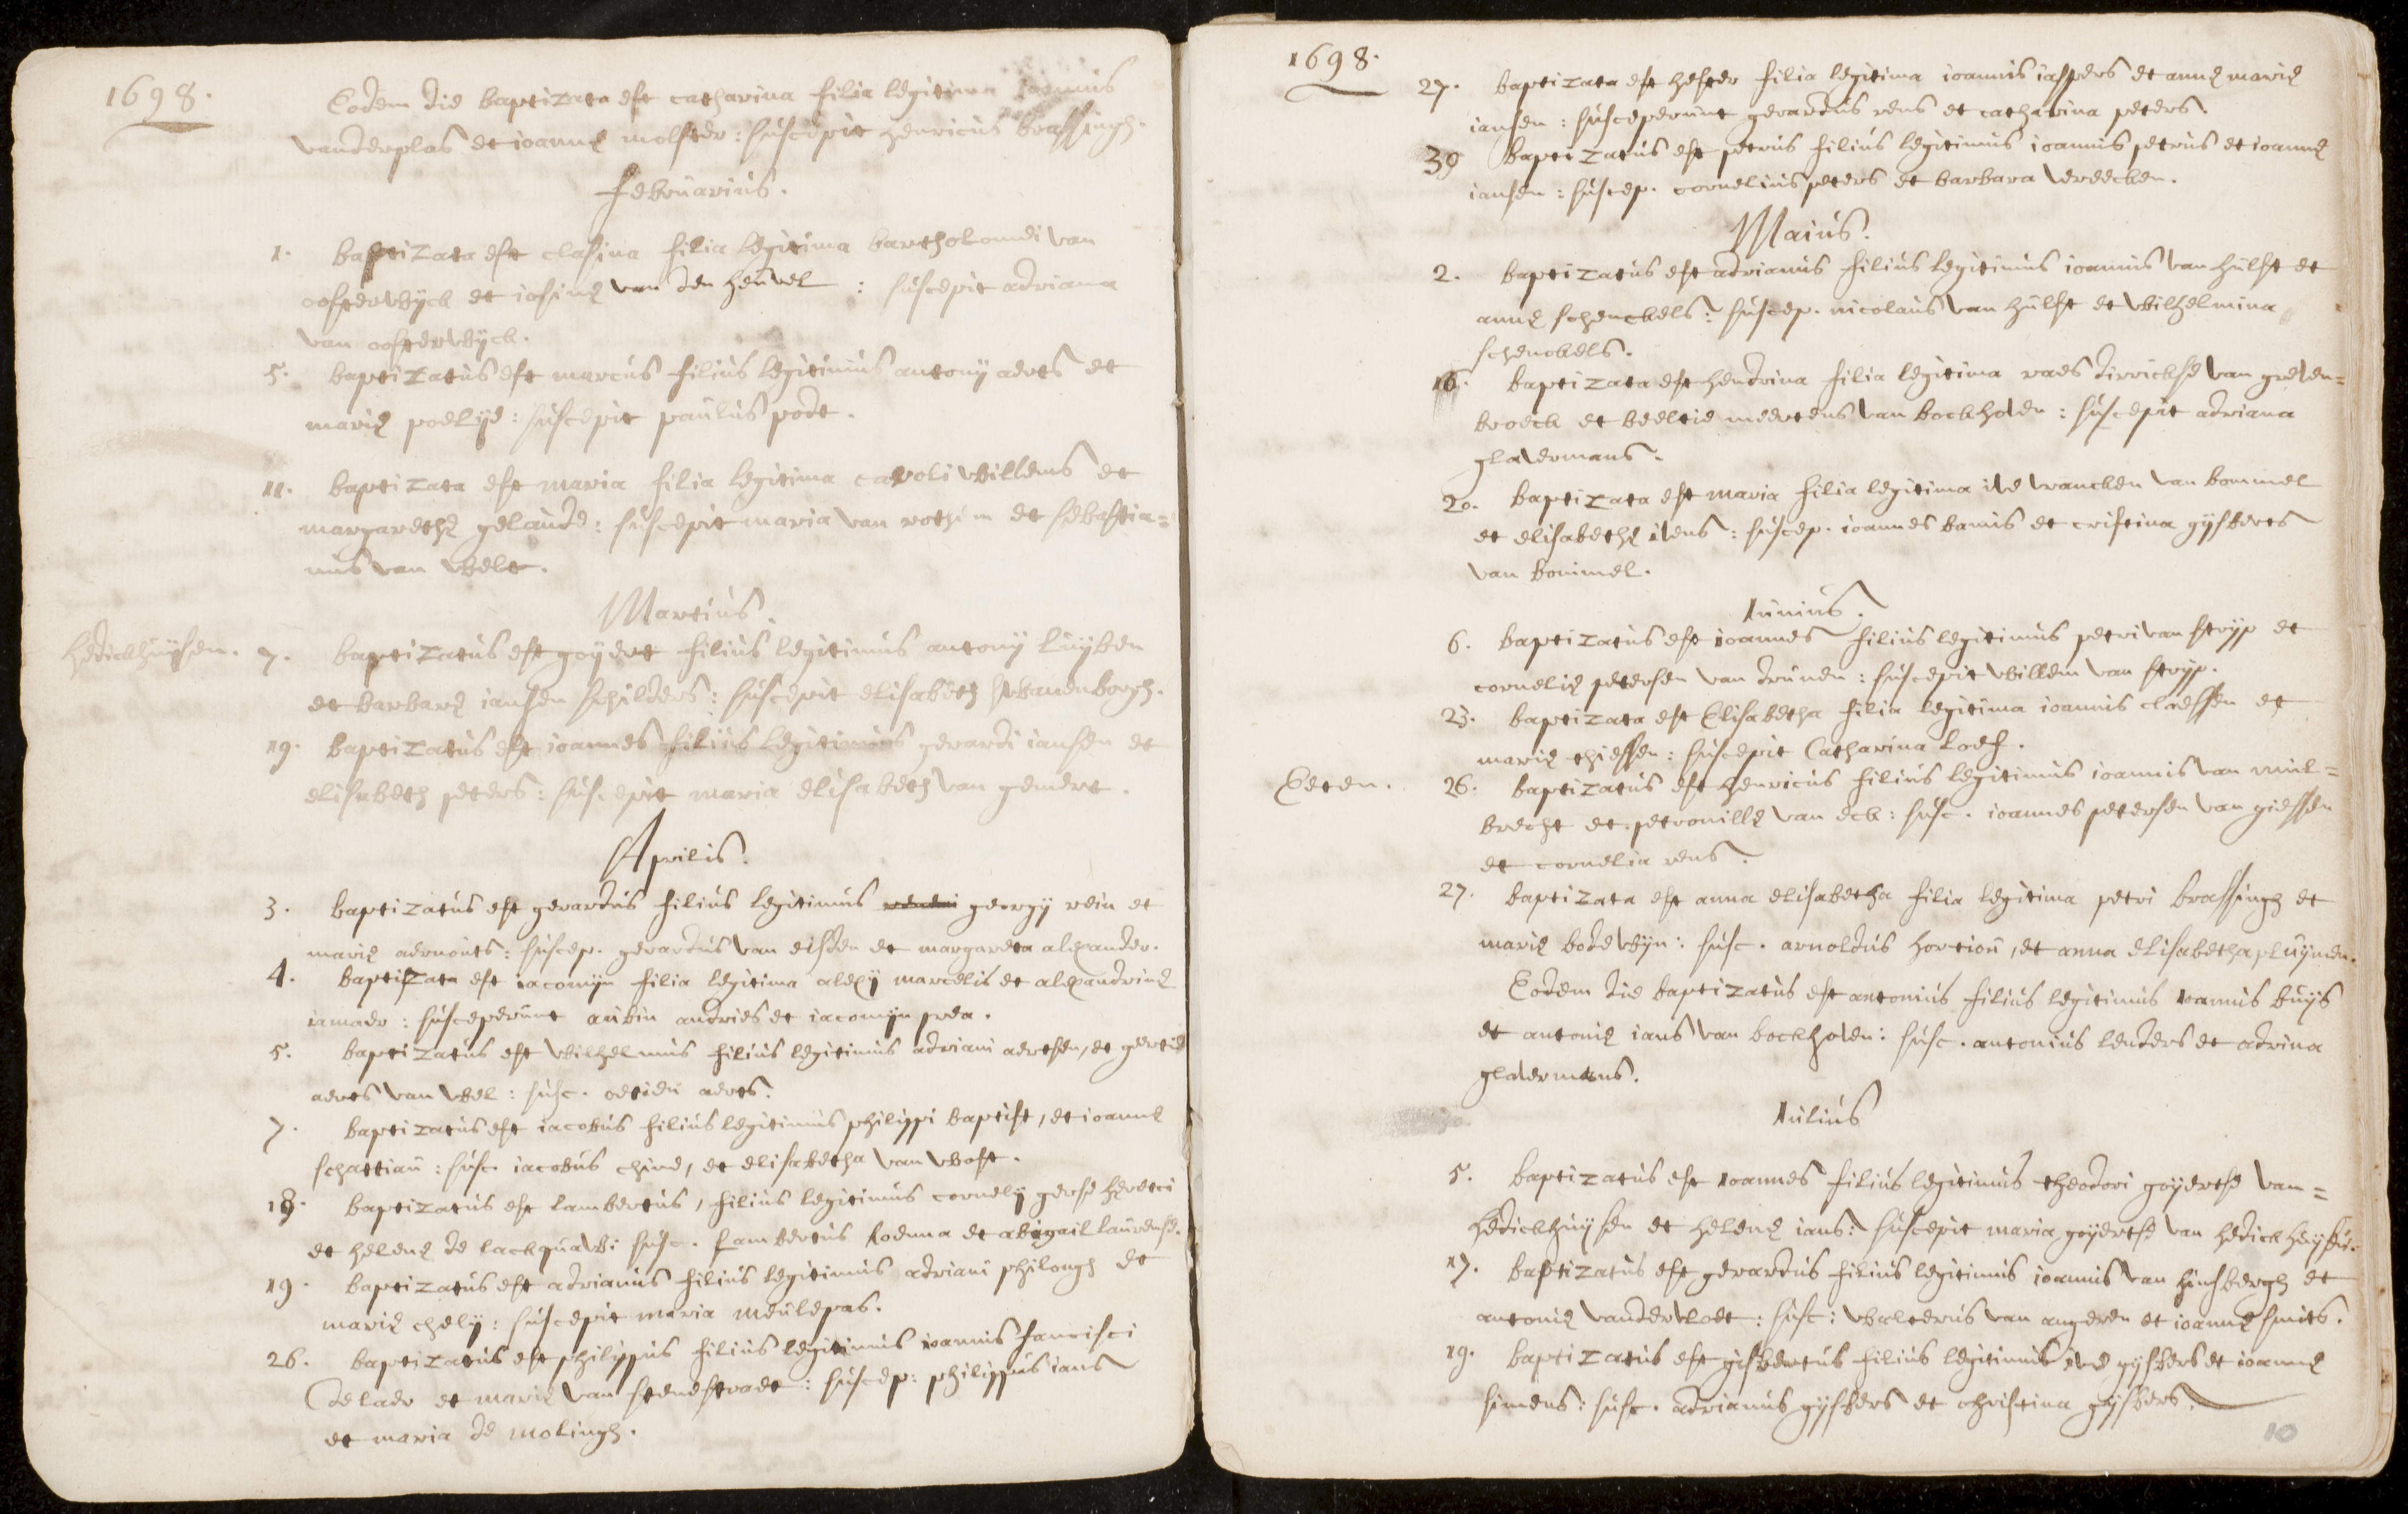 1698.
Eodem die baptizata est catharina filia legitima ioannis
vanderplas et ioannę molster: suscepit henricus brassingh.
Februarius.
1. baptizata est clasina filia legitima bartholomei van
oosterwyck et iosinę van den heuvel : suscepit adriana
van oosterwyck.
5. baptizatus est marcus filius legitimus antony aerts et
marię poelye: suscepit paulus pode.
11. baptizata est maria filia legitima caroli willems et
margarethę gelaude: suscepit maria van rothem et sebastia=
nus van welt.
Martius.
hedickhuysen. 7. baptizatus est goyert filius legitimus antony luyben
et barbarę iansen schilders: suscepit elisabeth swanenborgh.
19. baptizatus est ioannes filius legitimus gerardi iansen et
elisabeth peters: suscepit maria elisabeth van gendert.
Aprilis.
3. baptizatus est gerardus filius legitimus georgy rein et
marię aernouts: suscep. gerardus van eisden et margareta alexander.
4. baptizata est iacomyn filia legitima alexy marcelis et alexandrinę
iamaer: susceperunt aubin andries et iacomyn prea.
5. baptizatus est wilhelmus filius legitimus adriani aertsen, et geertie
aerts van wel: susc. oetien aerts.
7. baptizatus est iacobus filius legitimus philippi baptist, et ioannę
schattiau: susc. iacobus chine, et elisabetha van wost.
18. baptizatus est lambertus, filius legitimus cornely gerse
et helenę de lachquawi susc. Lambertus loenna et abigail laurense.
19. baptizatus est adrianus filius legitimus adriani philongh et
marię chely: suscepit maria meulepas.
26. baptizatus est philippus filius legitimus ioannis francisci
delaer et marię van stenestraet: suscep: philippus ians
et maria de molingh.
1698.
27. baptizata est hester filia legitima ioannis iaspers et annę marię
iansen: susceperunt gerardus rens et catharina peters.
30 baptizatus est petrus filius legitimus ioannis petrus et ioannę
iansen: suscep. cornelius peters et barbara vereecken.
Maius.
2. baptizatus est adrianus filius legitimus ioannis van hulst et
annę schenckels: suscep. nicolaus van hulst et wilhelmina
schenckels.
16. baptizata est hendrina filia legitima raes dirrickse van greven=
broeck et beeltie meertens van bockhoven: suscepit adriana
glavermans.
20. baptizata est maria filia legitima ive vrancken van bommel
et elisabethę ivens: suscep. ioannes banis et cristina gysberts
van bommel.
Iunius.
6. baptizatus est ioannes filius legitimus petri van stryp et
cornelię petersen van drunen: suscepit willem van stryp.
23. baptizata est Elisabetha filia legitima ioannis claessen et
marię thiessen: suscepit Catharina loef.
Eeten. 26. baptizatus est henricus filius legitimus ioannis van mil=
brecht et petronillę van eck: susc. ioannes petersen van giessen
et cornelia rens.
27. baptizata est anna elisabetha filia legitima petri brassingh et
marię bodewyn: susc. arnoldus hortiou, et anna elisabetha pluymen.
Eodem die baptizatus est antonius filius legitimus ioannis buys
et antonię ians van bockhoven: susc. antonius lenders et adrina
glavermans.
Iulius
5. baptizatus est ioannes filius legitimus theodori goyertse van=
hedickhuysen et helenę ians: suscepit maria goyertse van hedickhuysen.
17. baptizatus est gerardus filius legitimus ioannis van hinsbergh et
antonię vandervloet: susc: walterus van angeren et ioannę smits.
19. baptizatus est gisbertus filius legitimus ive gysbers et ioannę
simens: susc. adrianus gysbers et christina gysbers.
10